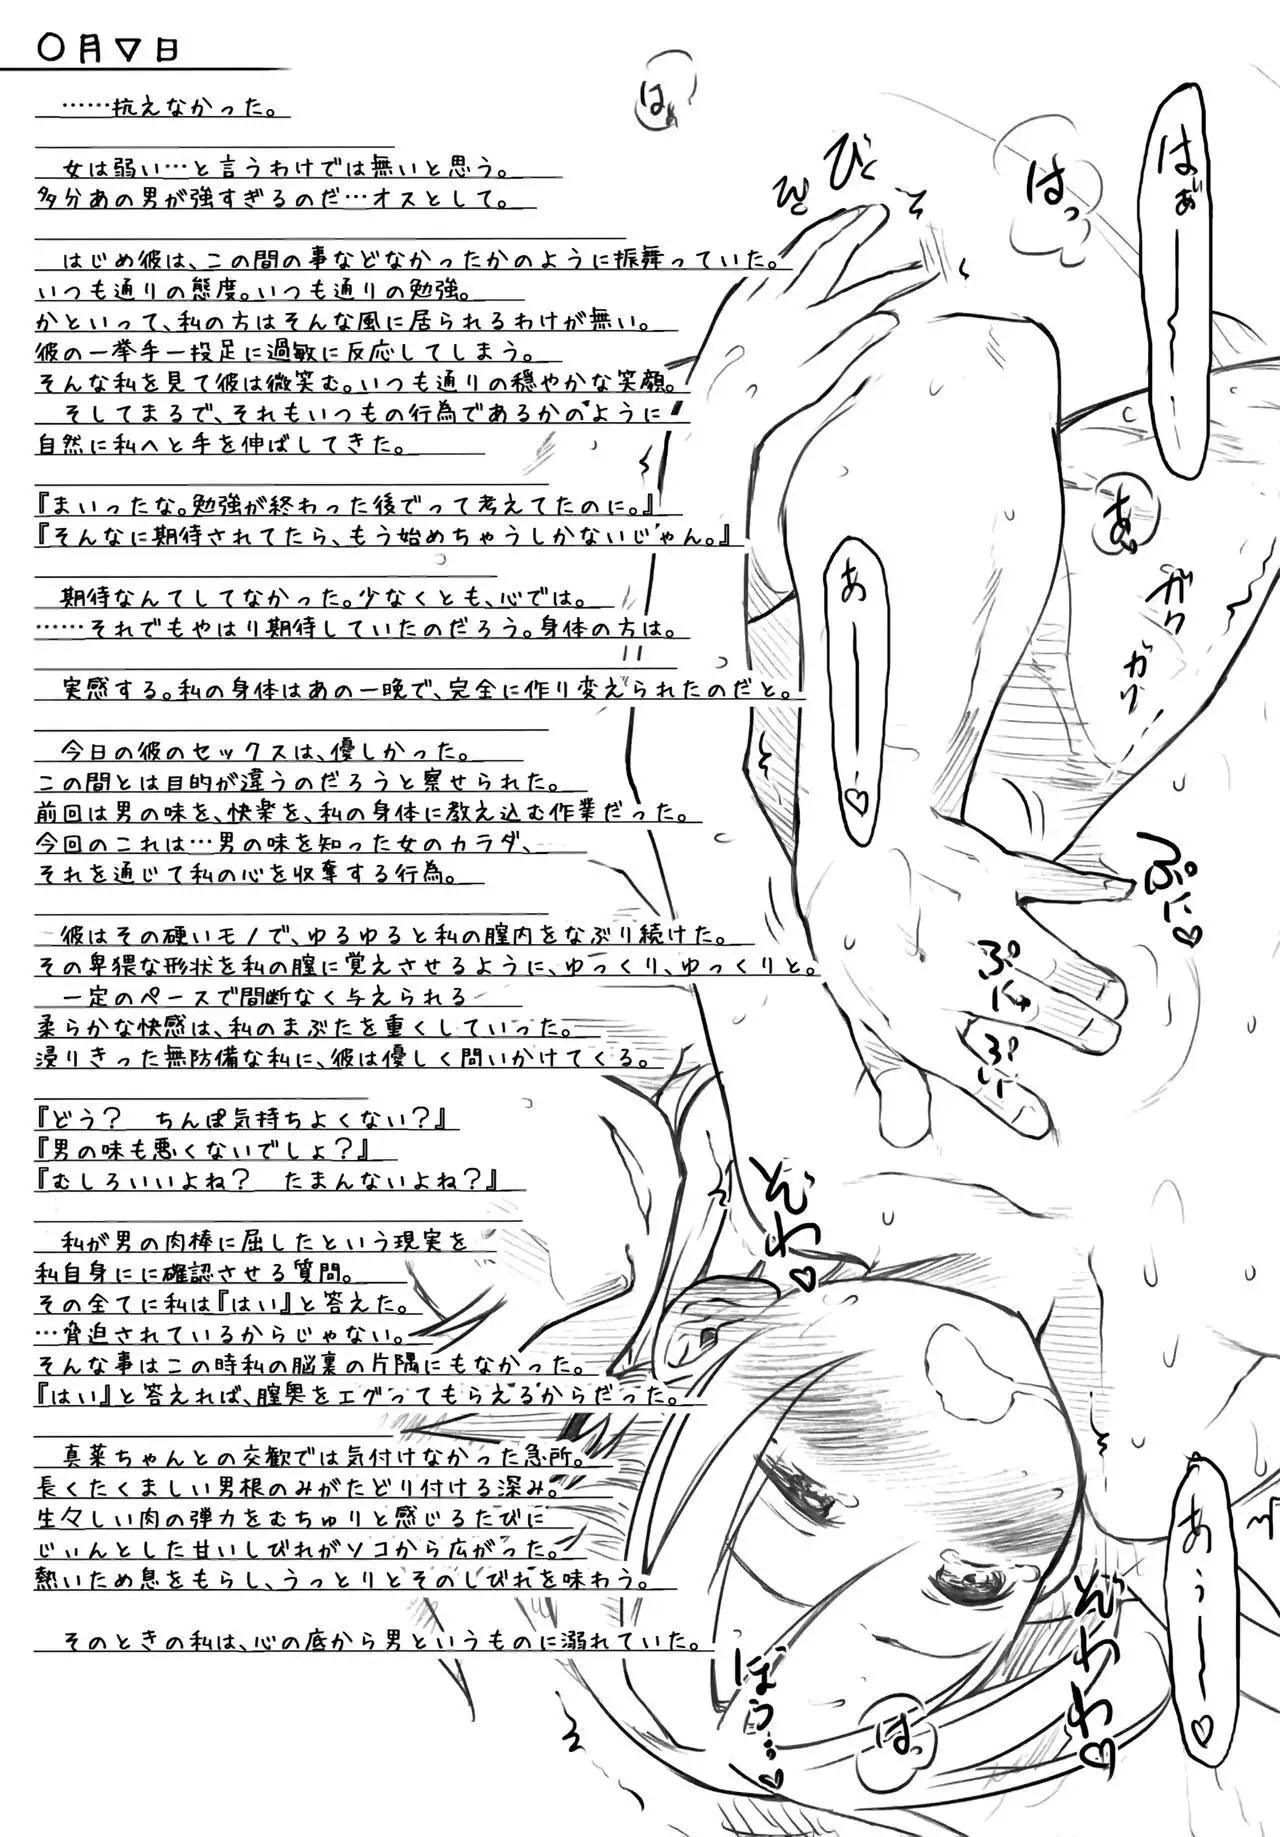 〇月▽日
……抗えなかった。
女は弱い…と言うわけでは無いと思う。
多分あの男が強すぎるのだ…オスとして。
はじめ彼は、この間の事などなかったかのように振舞っていた。
いつも通りの態度。いつも通りの勉強。
かといって、私の方はそんな風に居られるわけが無い。
彼の一挙手一投足に過敏に反応してしまう。
そんな私を見て彼は微笑む。いつも通りの穏やかな笑顔。
そしてまるで、それもいつもの行為であるかのように
自然に私へと手を伸ばしてきた。
『まいったな。勉強が終わった後でって考えてたのに。』
『そんなに期待されてたら、もう始めちゃうしかないじゃん。』
期待なんてしてなかった。少なくとも、心では。
……それでもやはり期待していたのだろう。身体の方は。
実感する。私の身体はあの一晩で、完全に作り変えられたのだと。
今日の彼のセックスは、優しかった。
この間とは目的が違うのだろうと察せられた。
前回は男の味を、快楽を、私の身体に教え込む作業だった。
今回のこれは…男の味を知った女のカラダ、
それを通じて私の心を収奪する行為。
彼はその硬いモノで、ゆるゆると私の膣内をなぶり続けた。
その卑猥な形状を私の膣に覚えさせるように、ゆっくり、ゆっくりと。
一定のペースで間断なく与えられる
柔らかな快感は、私のまぶたを重くしていった。
浸りきった無防備な私に、彼は優しく問いかけてくる。
『どう？　ちんぽ気持ちよくない？』
『男の味も悪くないでしょ？』
『むしろいいよね？　たまんないよね？』
私が男の肉棒に屈したという現実を
私自身にに確認させる質問。
その全てに私は『はい』と答えた。
…脅迫されているからじゃない。
そんな事はこの時私の脳裏の片隅にもなかった。
『はい』と答えれば、膣奥をエグってもらえるからだった。
真菜ちゃんとの交歓では気付けなかった急所。
長くたくましい男根のみがたどり付ける深み。
生々しい肉の弾力をむちゅりと感じるたびに
じぃんとした甘いしびれがソコから広がった。
熱いため息をもらし、うっとりとそのしびれを味わう。
そのときの私は、心の底から男というものに溺れていた。
はぁぁーー
はっ
は
びく
あ
ガク
ガク
あーー♡
ぷに♡
ぷにゅ
ぷに
ぞわ♡
ぞわわわ♡
あぅーー♡
ぽぅ…♡
はっ